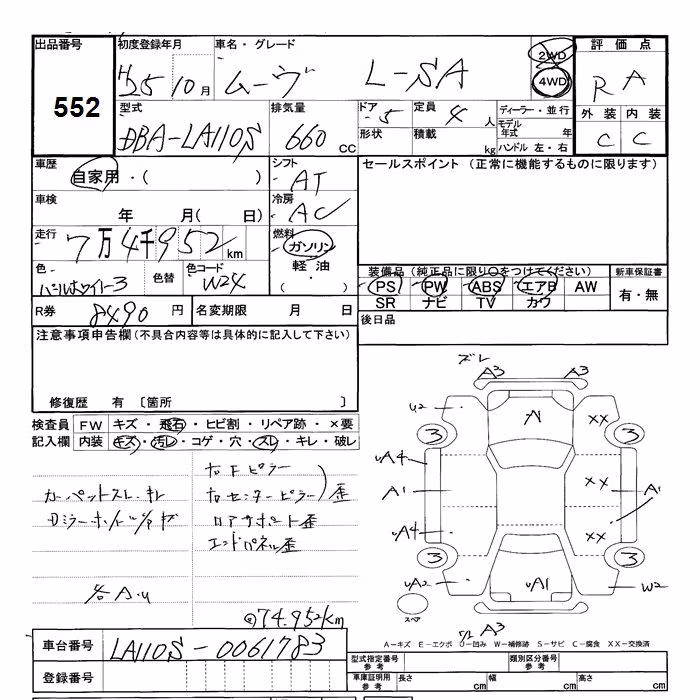 出品番号 初度登録年月 車名・グレード 評価点
552 H25 10月 ムーヴ L-SA 2WD 4WD R A
型式 排気量 ドア 5 定員 4人 ディーラー・並行 外装 内装
DBA-LA110S 660 CC 形状 積載 kg モデル年式 年 C C
ハンドル 左・右
車歴 自家用・( ) シフト AT セールスポイント (正常に機能するものに限ります)
車検 年 月( 日) 冷房 AC
走行 7万4千952km 燃料 ガソリン
軽油
・( )
色 パールホワイト3 色替 色コード W24
装備品(純正品に限り○をつけてください) 新車保証書
PS PW ABS エアB AW 有・無
SR ナビ TV カワ
R券 8490円 名変期限 月 日 後日品
注意事項申告欄(不具合内容等は具体的に記入して下さい)
修復歴 有 〔箇所 〕
検査員 FW キズ・飛石・ヒビ割・リペア跡・×要
記入欄 内装 キズ・汚レ・コゲ・穴・スレ・キレ・破レ
右Fピラー
カーペットスレ・キレ 右センターピラー)歪
ロアサポート歪
エンドパネル歪
各A・U
74.952km
ズレ
A3 A3
U2 A XX
3 3
UA4
A1 XX A1
UA4 XX
3 3
UA2 UA1 W2
スペア
A3
A-キズ E-エクボ U-凹み W-補修跡 S-サビ C-腐食 XX-交換済
車台番号 LA110S-0061783
登録番号
型式指定番号 参考 類別区分番号 参考
車庫証明用 参考 長さ cm 幅 cm 高さ cm